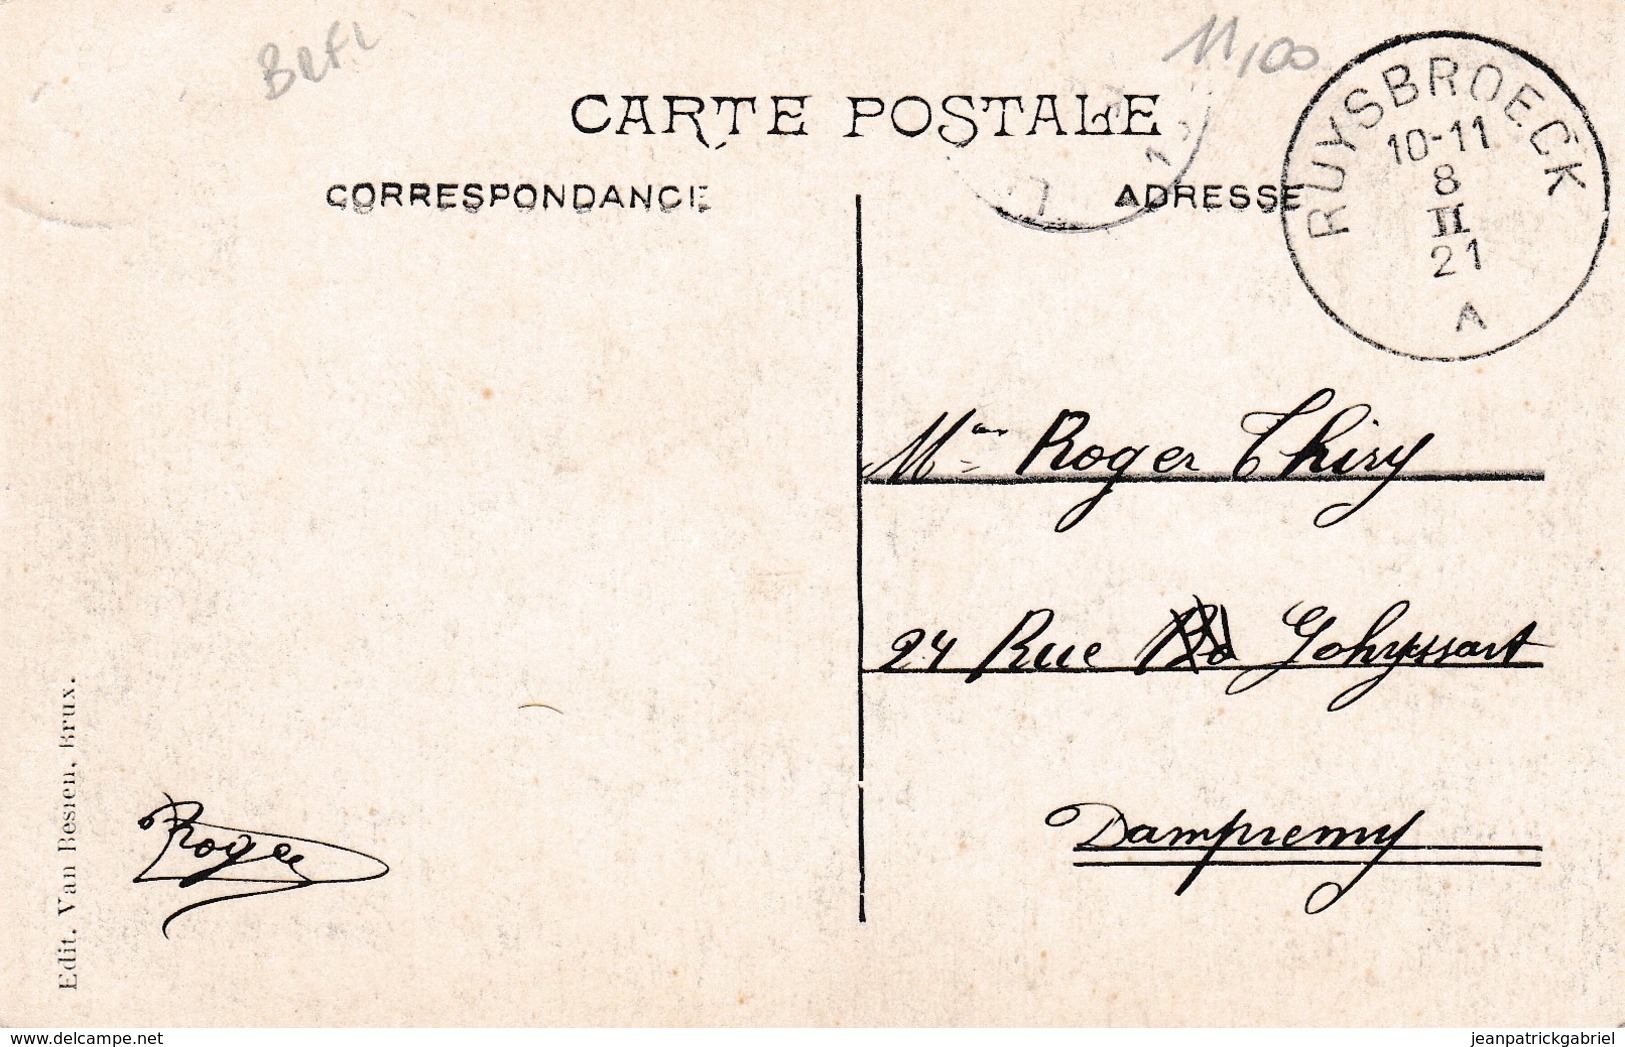 BRFL
11,00
CARTE POSTALE
CORRESPONDANCE
ADRESSE
RUYSBROECK
10-11
8
II
21
A
Roger Thiry
24 Rue Gohyssart
Dampremy
Roger
Edit. Van Besien, Brux.
delcampe.net
jeanpatrickgabriel